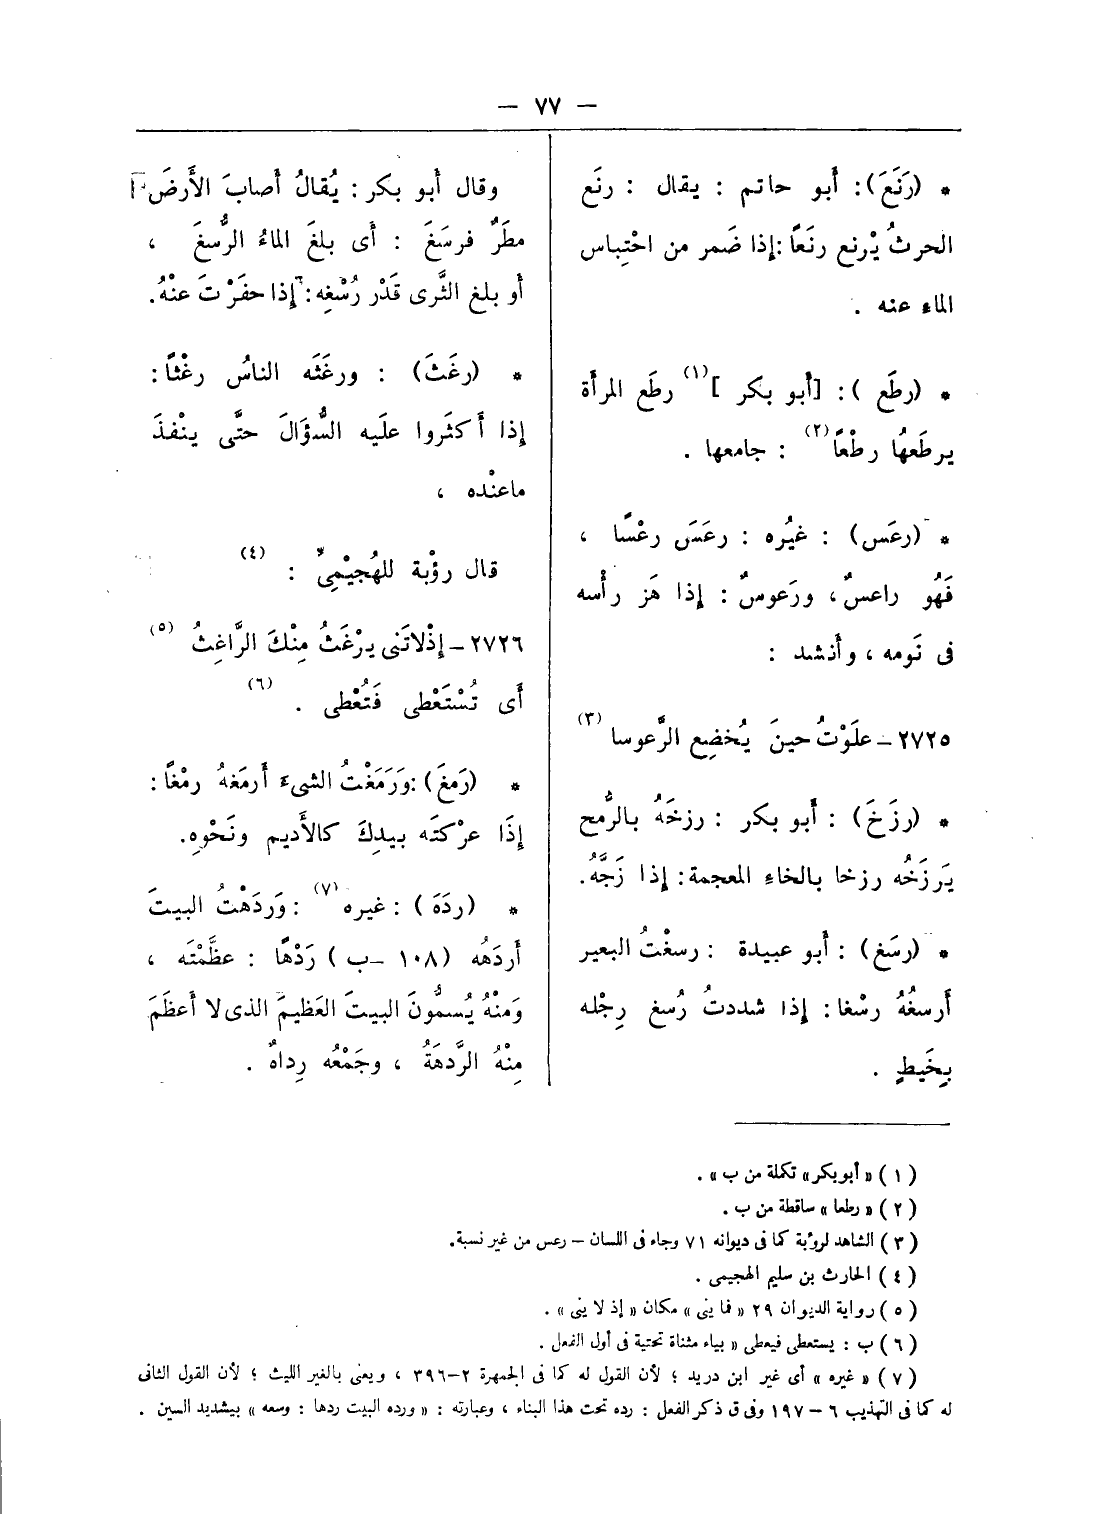 — ٧٧ —
* (رَنَعَ): أَبو حاتم : يقال : رنَع
الحرثُ يْرنع رنَعاً :إذا ضَمر من احْتِباس
الماء عنه .
* (رطَع ): [أَبو بكر ](١) رطَع المرأة
يرطَعهُا رطْعاً(٢) : جامعها .
* (رعَس) : غيُره : رعَسَ رعْسًا ،
فَهُو راعسٌ، ورَعوسٌ : إذا هَز رأْسه
فى نَومه ، وأَنشد :
٢٧٢٥ – علَوْتُ حينَ يُخضِع الرَّعوسا (٣)
* (رزَخَ) : أَبو بكر : رزخَهُ بالرُّمح
يَرزَخُه رزخا بالخاءِ المعجمة : إذا زَجَّهُ.
* (رسَغ) : أَبو عبيدة : رسغْتُ البعير
أَرسغُهُ رسْغا : إذا شددتُ رُسغ رِجْله
بِخَيطٍ .
وقال أَبو بكر : يُقالُ أَصابَ الأَرضَ
مطَرٌ فرسَغَ : أَى بلغَ الماءُ الرُّسغَ ،
أَو بلغ الثَّرى قَدْر رُسْغِه : إذا حفَرْتَ عنْهُ.
* (رغَثَ) : ورغَثَه الناسُ رغْثاً :
إذا أَكثَروا علَيه السُّؤَالَ حتَّى ينْفذَ
ماعنْده ،
قال رؤْبة للهُجيْمِىِّ : (٤)
٢٧٢٦ – إذْلاتَنى يرْغَثُ مِنْكَ الرَّاغِثُ (٥)
أَى تُسْتَعْطى فَتُعْطى . (٦)
* (رَمغَ) :وَرَمَغْتُ الشىءَ أَرمَغهُ رمْغاً :
إذَا عرْكتَه بيدِكَ كالأَديم ونَحْوِه.
* (ردَهَ ) : غيره (٧) : وَردَهْتُ البيتَ
أَردَهُه (١٠٨ –ب ) رَدْهًا : عظَّمْتَه ،
وَمنْهُ يُسمُّونَ البيتَ العَظيمَ الذى لا أَعظَمَ
مِنْهُ الرَّدهَةُ ، وجَمْعُه رِداهٌ .
( ١ ) « أبوبكر» تكملة من ب » .
( ٢ ) « رطعا » ساقطة من ب .
( ٣ ) الشاهد لرؤبة كما فى ديوانه ٧١ وجاء فى اللسان – رعس من غير نسبة.
( ٤ ) الحارث بن سليم الهجيمى .
( ٥ ) رواية الديوان ٢٩ « فما ينى » مكان « إذ لا ينى » .
( ٦ ) ب : يستعطى فيعطى « بياء مثناة تحتية فى أول الفعل .
( ٧ ) « غيره » أى غير ابن دريد ؛ لأن القول له كما فى الجمهرة ٢–٣٩٦ ، ويعنى بالغير الليث ؛ لأن القول الثانى
له كما فى التهذيب ٦ – ١٩٧ وفى ق ذكر الفعل : رده تحت هذا البناء ، وعبارته : « ورده البيت ردها : وسعه » بيشديد السين .